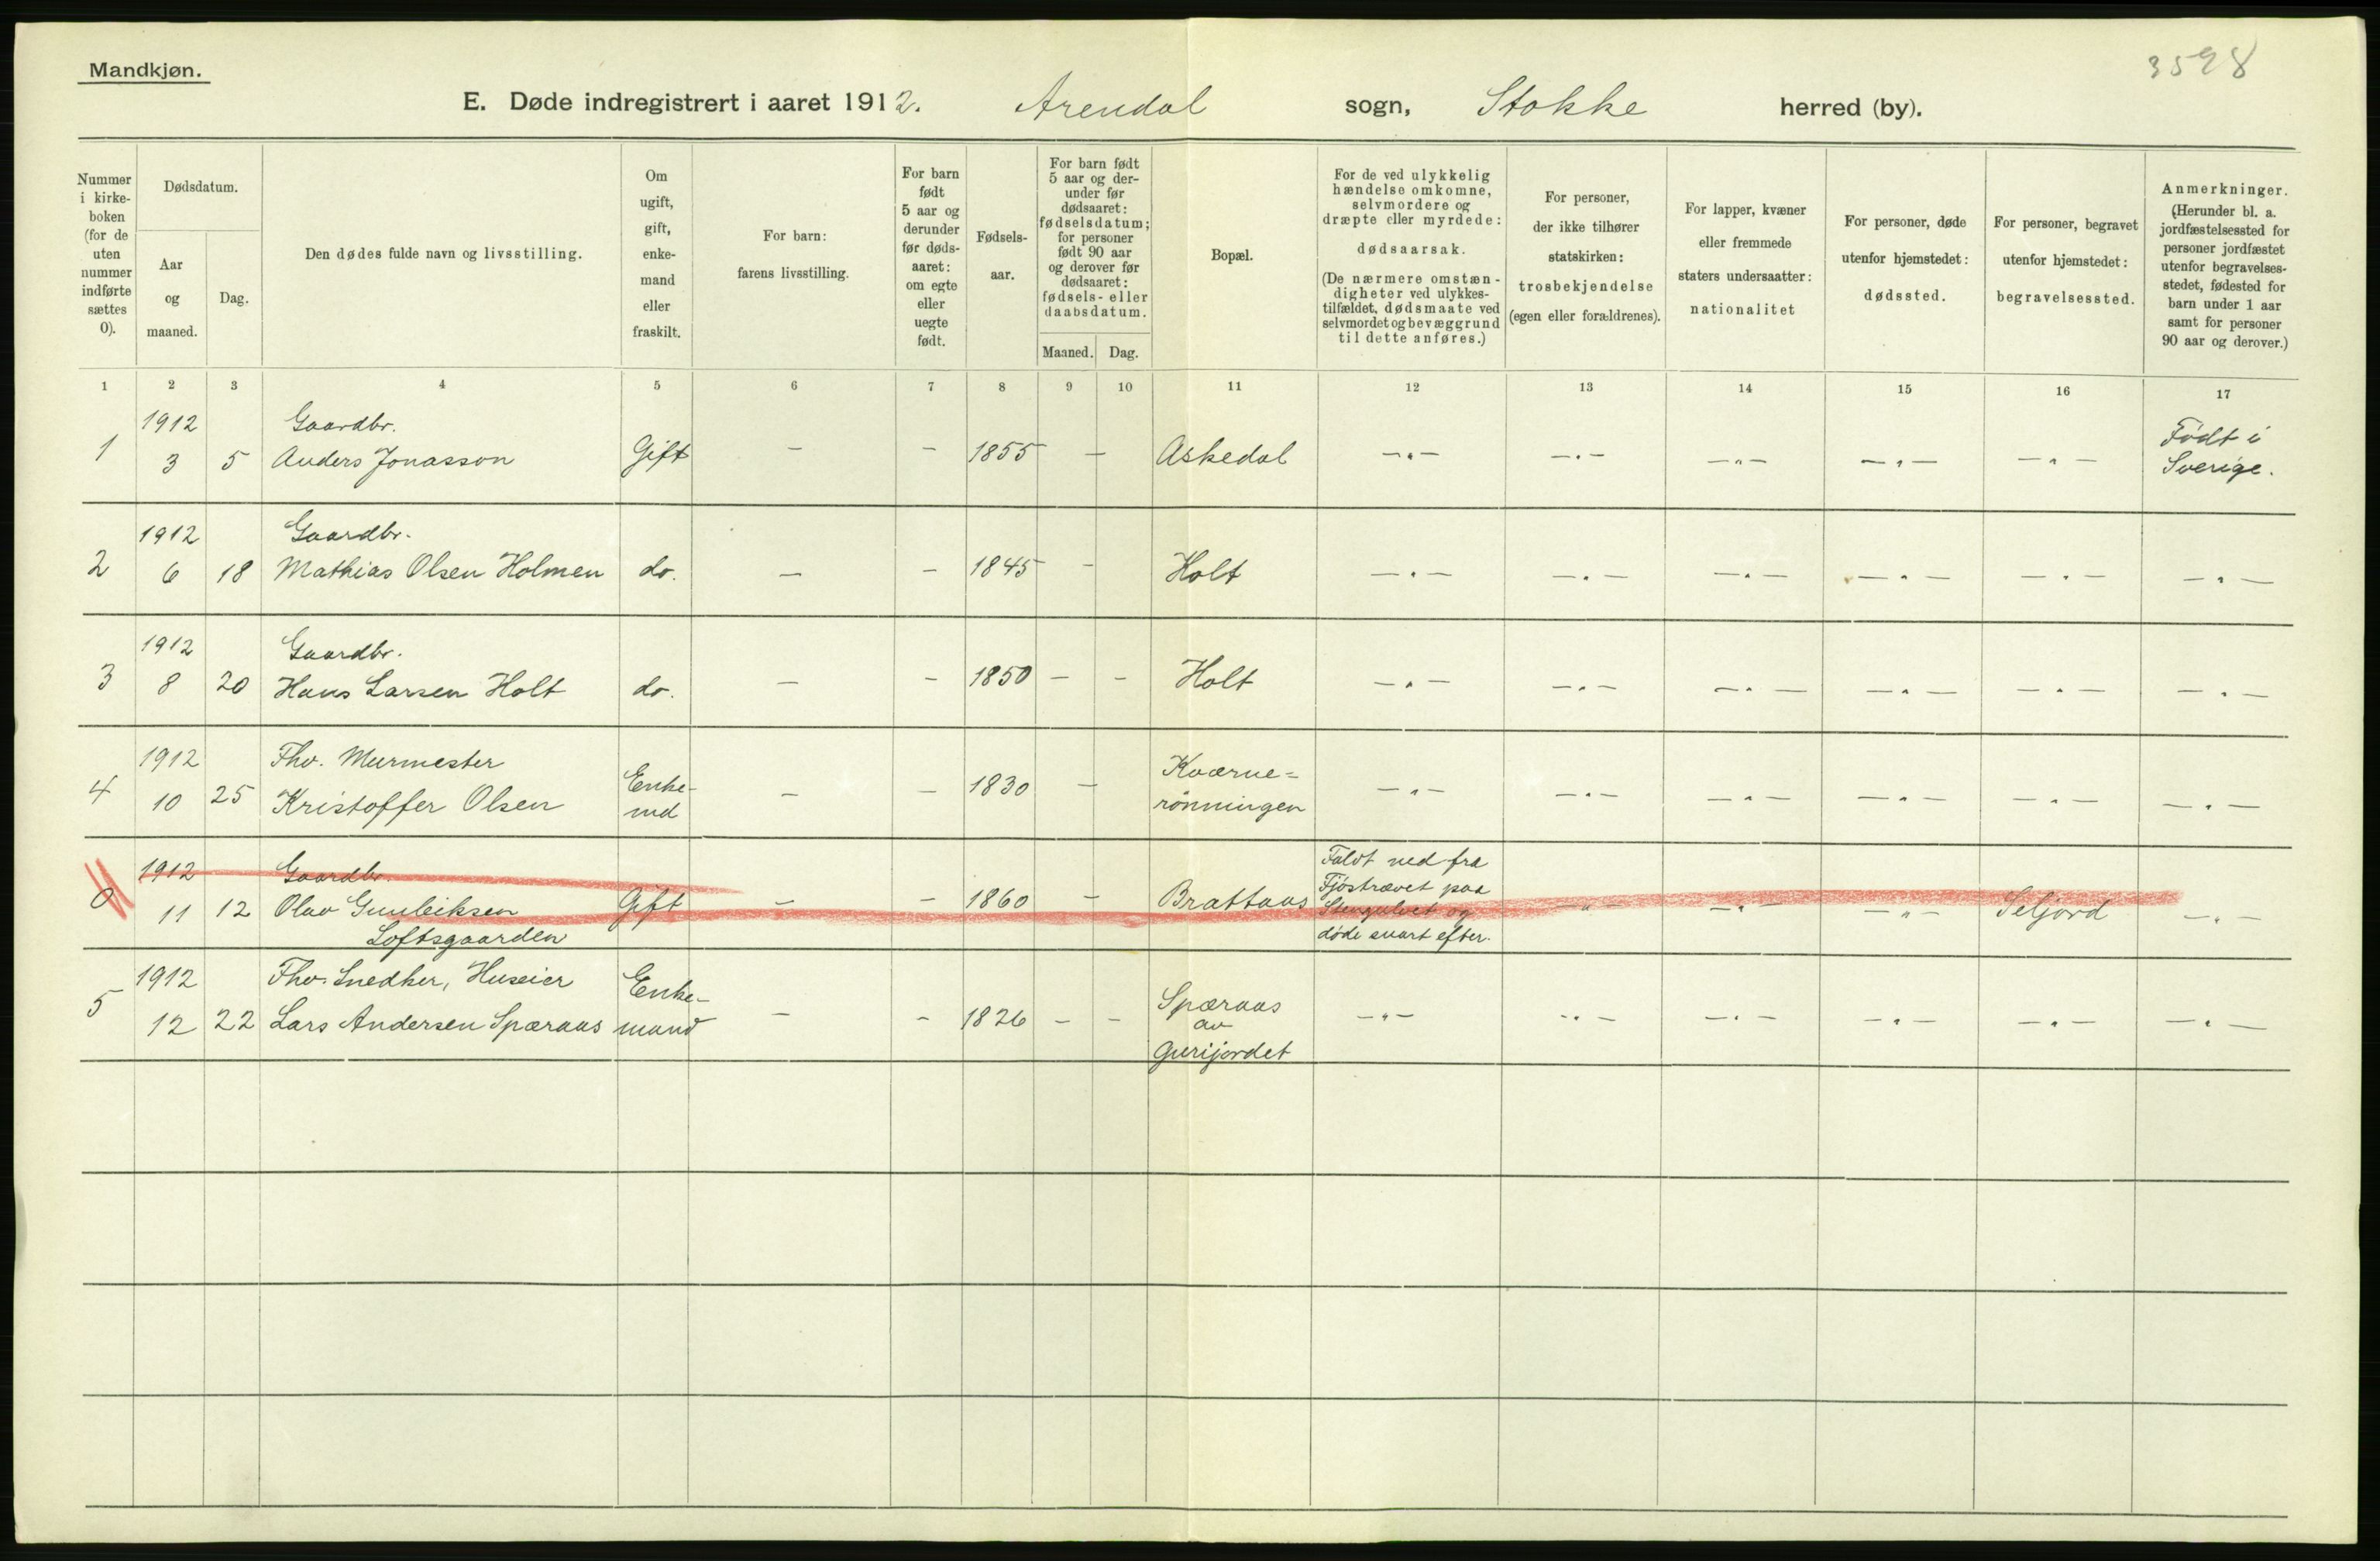 Mandkjøn.
3598
E. Døde indregistrert i aaret 1912. Arendal sogn, Stokke herred (by).
Nummer i kirke-boken (for de uten nummer indførte sættes 0).
Dødsdatum.
Aar og maaned.
Dag.
Den dødes fulde navn og livsstilling.
Om ugift, gift, enke-mand eller fraskilt.
For barn: farens livsstilling.
For barn født 5 aar og derunder før døds-aaret: om egte eller uegte født.
Fødsels-aar.
For barn født 5 aar og der-under før dødsaaret: fødselsdatum; for personer født 90 aar og derover før dødsaaret: fødsels- eller daabsdatum.
Maaned.
Dag.
Bopæl.
For de ved ulykkelig hændelse omkomne, selvmordere og dræpte eller myrdede: dødsaarsak.
(De nærmere omstæn-digheter ved ulykkes-tilfældet, dødsmaate ved selvmordet og bevæggrund til dette anføres.)
For personer, der ikke tilhører statskirken: trosbekjendelse (egen eller forældrenes).
For lapper, kvæner eller fremmede staters undersaatter: nationalitet
For personer, døde utenfor hjemstedet: dødssted.
For personer, begravet utenfor hjemstedet: begravelsessted.
Anmerkninger.
(Herunder bl. a. jordfæstelsessted for personer jordfæstet utenfor begravelses-stedet, fødested for barn under 1 aar samt for personer 90 aar og derover.)
1 2 3 4 5 6 7 8 9 10 11 12 13 14 15 16 17
1912 Gaardbr. Født i
1 3 5 Anders Jonasson Gift — — 1855 — Askedal —"— —"— —"— —"— —"— Sverige.
1912 Gaardbr.
2 6 18 Mathias Olsen Holmen do. — — 1845 — Holt —"— —"— —"— —"— —"— —"—
1912 Gaardbr.
3 8 20 Hans Larsen Holt do. — — 1850 — — Holt —"— —"— —"— —"— —"— —"—
1912 Fhv. Murmester Enke- Kværne=
4 10 25 Kristoffer Olsen md — — 1830 — rönningen —"— —"— —"— —"— —"— —"—
1912 Gaardbr. Faldt ned fra
Fjöstrævet paa
0 11 12 Olav Gunleiksen Gift — — 1860 — Brattaas Stengulvet og —"— —"— —"— Seljord —"—
Loftsgaarden døde snart efter.
1912 Fhv. Snedker, Huseier Enke- Spæraas
5 12 22 Lars Andersen Spæraas mand — — 1826 — — av —"— —"— —"— —"— —"— —"—
Gurijordet